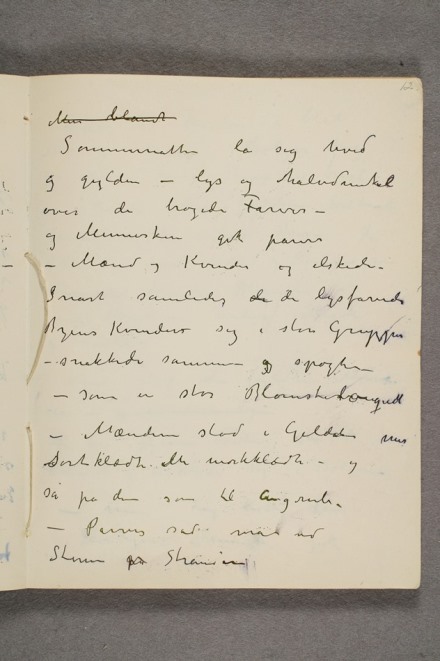 12
Men blandt
Sommernatten la sig hvid
og gylden – lys og halvdunkel
over de brogede Farver –
og Mennesken gik parvis
– Mænd og Kvinder og elskede.
Snart samledes de de lysfarvede
Byens Kvinder sig i store Grupper
– snakkede sammen og spøgte
– som en stor Blomster
– Mændene stod i Geledder
Sortklædte eller mørkklædte – og
så på dem som til Angreb.
– Parvis
Stenene på Stranden